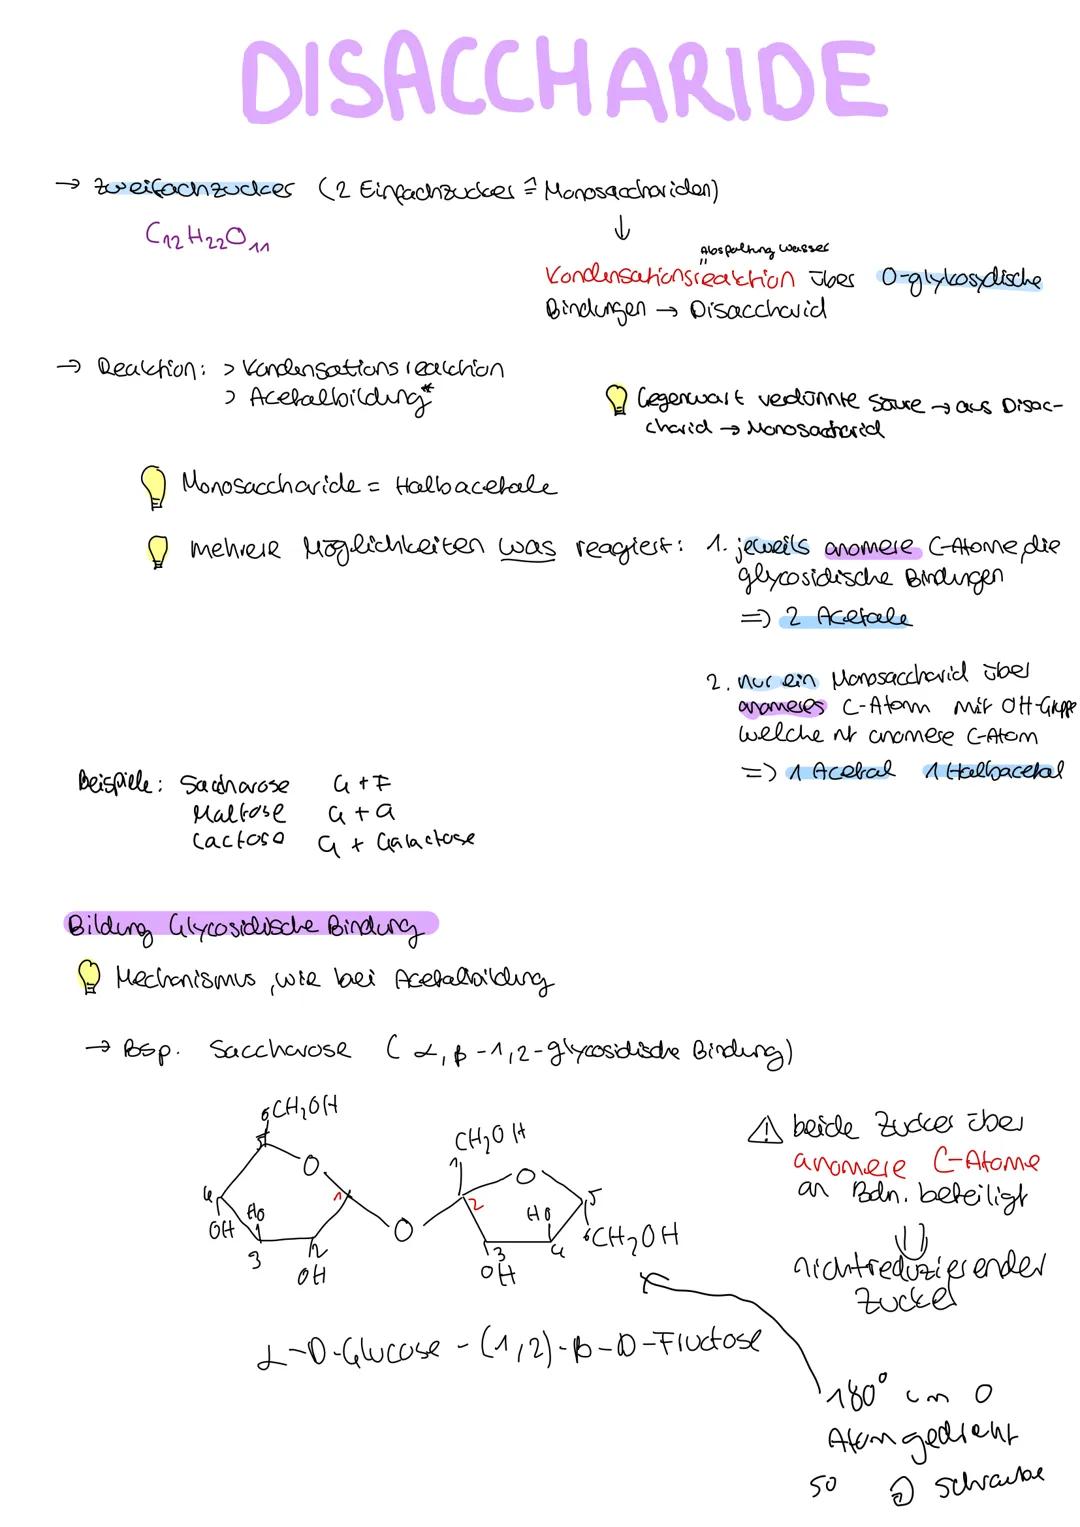 DISACCHARIDE
→ Zweifachzucker (2 Einfachzucker ≙ Monosacchariden)
C12H22O11
↓
Abspaltung Wasser
"
Kondensationsreaktion über O-glykosydische
Bindungen → Disaccharid
→ Reaktion: > Kondensationsreaktion
> Acetalbildung*
Gegenwart verdünnte Säure → aus Disac-
charid → Monosaccharid
Monosaccharide = Halbacetale
mehrere Möglichkeiten was reagiert: 1. jeweils anomere C-Atome, die
glycosidische Bindungen
=> 2 Acetale
2. nur ein Monosaccharid über
anomeres C-Atom mit OH-Gruppe
welche nt anomere C-Atom
=> 1 Acetal 1 Halbacetal
Beispiele: Saccharose G + F
Maltose G + G
Lactose G + Galactose
Bildung Glycosidische Bindung
Mechanismus, wie bei Acetalbildung
→ Bsp. Saccharose (α,β-1,2-glycosidische Bindung)
6CH2OH
5
O
4
OH
HO
3
2
OH
1
O
CH2OH
1
2
O
HO
5
3
OH
4
6CH2OH
⚠ beide Zucker über
anomere C-Atome
an Bdn. beteiligt
⇓
nichtreduzierender
Zucker
α-D-Glucose-(1,2)-β-D-Fructose
180° um O
Atom gedreht
so schraube